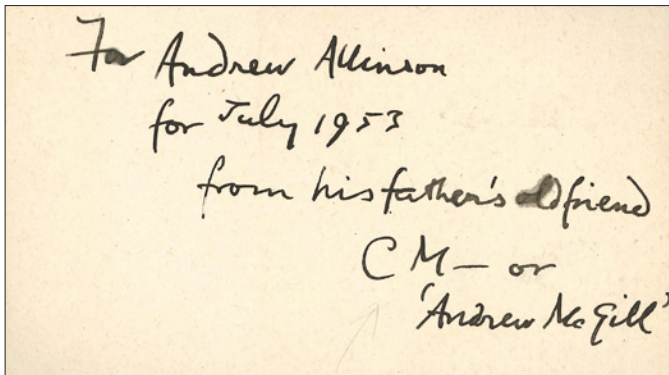 For Andrew Allinson
for July 1953
from his father's old friend
C M — or
'Andrew McGill'